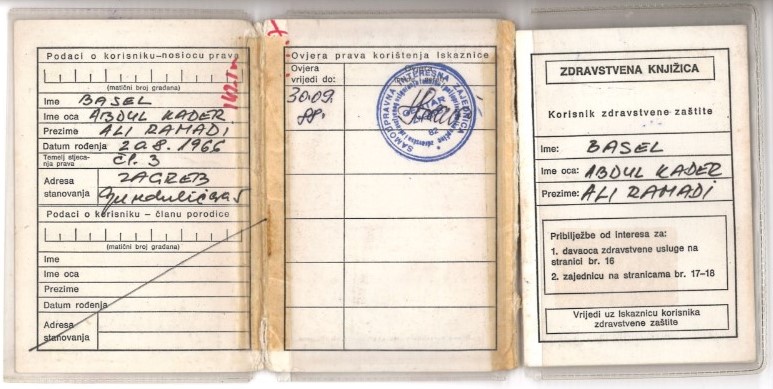 Podaci o korisniku–nosiocu prava
(matični broj građana)
Ime BASEL
Ime oca ABDUL KADER
Prezime ALI RAMADI
Datum rođenja 20.8.1966
Temelj stjecanja prava ČP. 3
Adresa stanovanja ZAGREB
Gundulićeva 5
Podaci o korisniku – članu porodice
(matični broj građana)
Ime
Ime oca
Prezime
Datum rođenja
Adresa
stanovanja
Ovjera prava korištenja Iskaznice
Ovjera
vrijedi do:
30.09.
88.
SAMOUPRAVNA INTERESNA ZAJEDNICA
CENTAR
82
ZDRAVSTVENA KNJIŽICA
Korisnik zdravstvene zaštite
Ime: BASEL
Ime oca: ABDUL KADER
Prezime: ALI RAMADI
Pribilježbe od interesa za:
1. davaoca zdravstvene usluge na
stranici br. 16
2. zajednicu na stranicama br. 17–18
Vrijedi uz Iskaznicu korisnika
zdravstvene zaštite